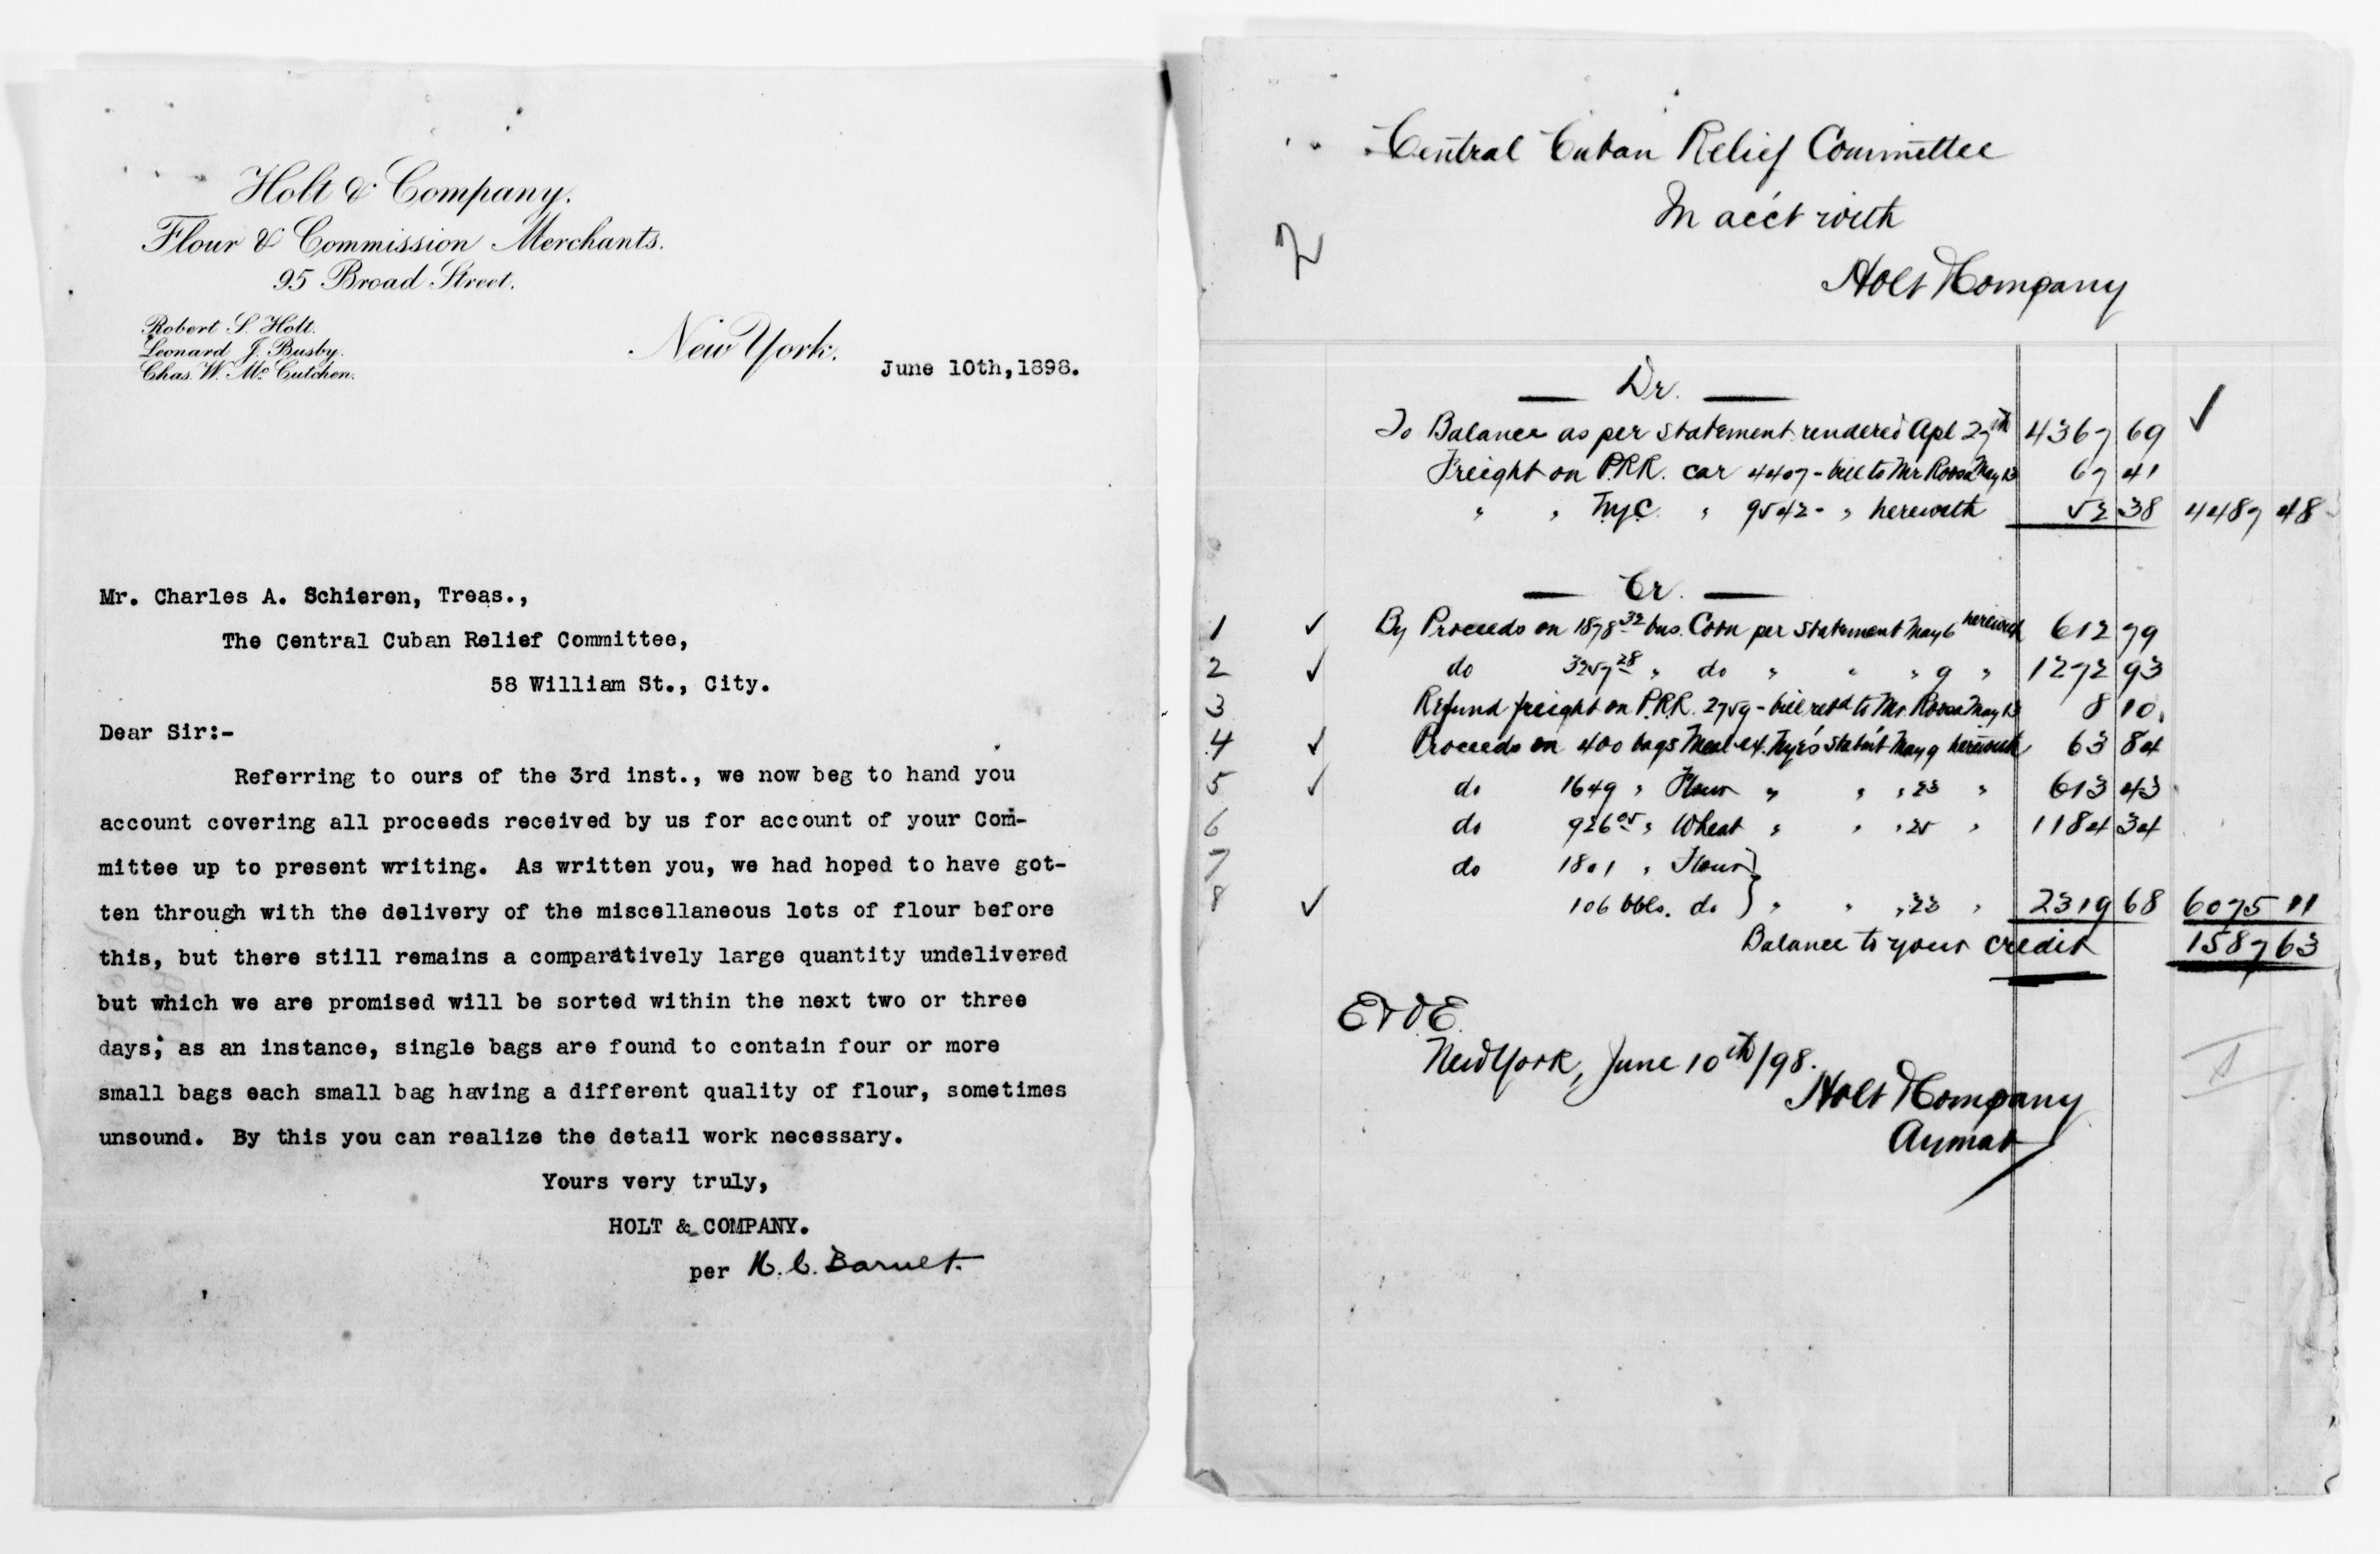 Holt & Company.
Flour & Commission Merchants.
95 Broad Street.
Robert S. Holt.
Leonard J. Busby.
Chas. W. Mc Cutchen.
New York.
June 10th, 1898.
Mr. Charles A. Schieren, Treas.,
The Central Cuban Relief Committee,
58 William St., City.
Dear Sir:-
Referring to ours of the 3rd inst., we now beg to hand you
account covering all proceeds received by us for account of your Com-
mittee up to present writing. As written you, we had hoped to have got-
ten through with the delivery of the miscellaneous lots of flour before
this, but there still remains a comparatively large quantity undelivered
but which we are promised will be sorted within the next two or three
days; as an instance, single bags are found to contain four or more
small bags each small bag having a different quality of flour, sometimes
unsound. By this you can realize the detail work necessary.
Yours very truly,
HOLT & COMPANY.
per H. C. Barnet.
Central Cuban Relief Committee
In acc't with
Holt & Company
Dr.
To Balance as per statement rendered Apl 27th 4367 69 ✓
Freight on P.R.R. car 4407 - bill to Mr Roosa May 13 67 41
" " N.Y.C. " 9542 - " herewith 52 38 4487 48
Cr.
1 ✓ By Proceeds on 1878 32 bus. Corn per statement May 6 herewith 612 79
2 ✓ do 3257 28 " do " " " 9 " 1272 93
3 Refund freight on P.R.R. 2759 - bill retd to Mr. Roosa May 13 8 10
4 ✓ Proceeds on 400 bags Meal May 9 herewith 63 84
5 ✓ do 1649 " Flour " " " 23 " 613 43
6 do 926 05 " Wheat " " " 25 " 1184 34
7 do 1801 " Flour }
8 ✓ 106 bbls. do } " " " 23 " 2319 68 6075 11
Balance to your credit 1587 63
E & O E.
New York, June 10th/98.
Holt & Company
Aymar